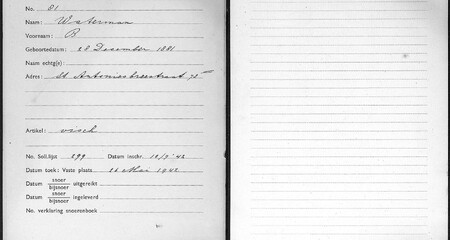 No. 81
Naam: Waterman
Voornaam: B
Geboortedatum: 28 December 1881
Naam echtg(e):
Adres: St. Antoniesbreestraat 72 III
Artikel: visch
No. Soll.lijst 299 Datum inschr. 10/9 '42
Datum toek: Vaste plaats 26 Mei 1942
Datum snoer/bijsnoer uitgereikt
Datum snoer/bijsnoer ingeleverd
No. verklaring snoerenboek